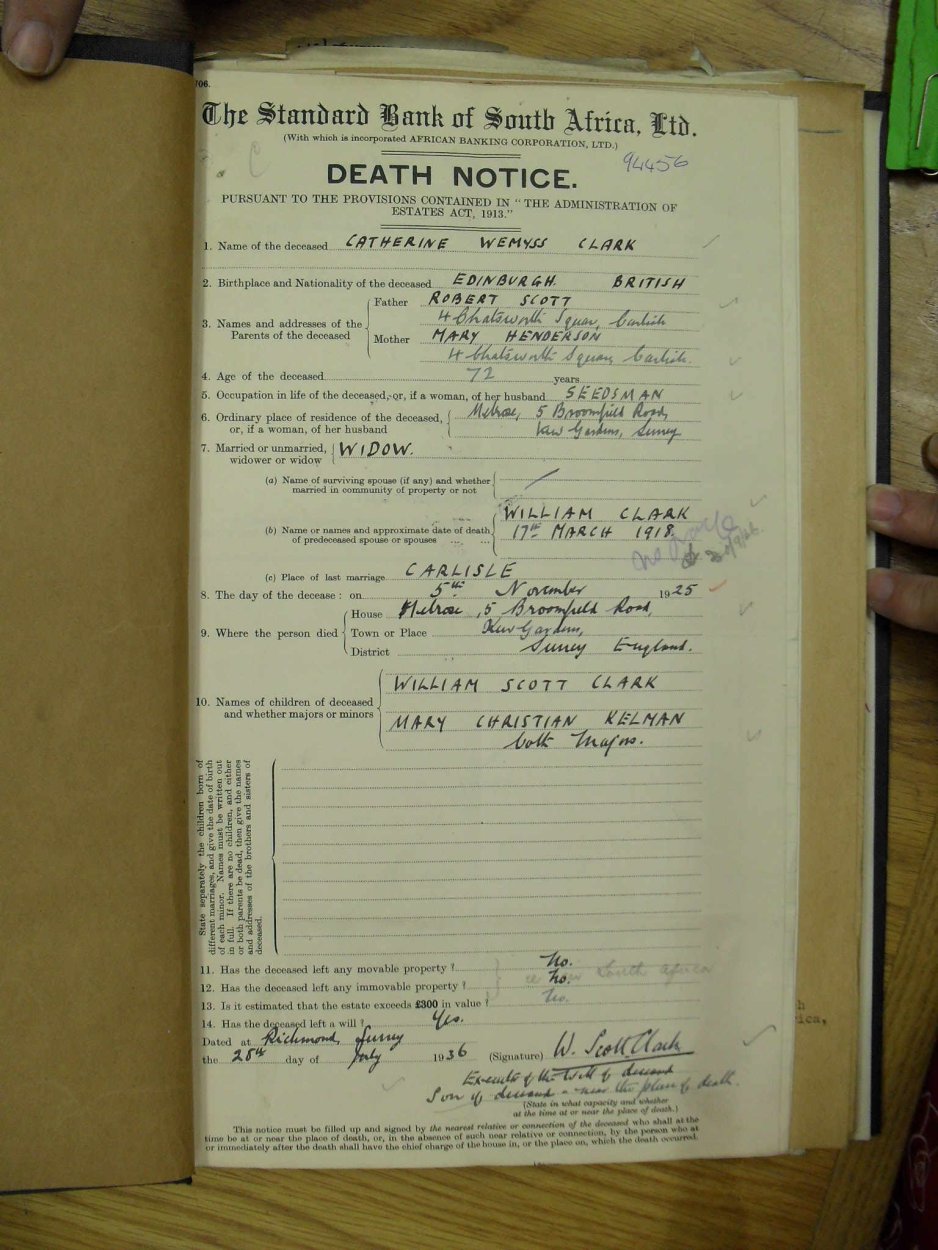 706.
The Standard Bank of South Africa, Ltd.
(With which is incorporated AFRICAN BANKING CORPORATION, LTD.)
94456
DEATH NOTICE.
PURSUANT TO THE PROVISIONS CONTAINED IN "THE ADMINISTRATION OF
ESTATES ACT, 1913."
1. Name of the deceased CATHERINE WEMYSS CLARK
2. Birthplace and Nationality of the deceased EDINBURGH. BRITISH
3. Names and addresses of the Parents of the deceased
Father ROBERT SCOTT
4 Chatsworth Square, Carlisle
Mother MARY HENDERSON
4 Chatsworth Square, Carlisle.
4. Age of the deceased 72 years
5. Occupation in life of the deceased, or, if a woman, of her husband SEEDSMAN
6. Ordinary place of residence of the deceased, Melrose, 5 Broomfield Road,
or, if a woman, of her husband Kew Gardens, Surrey
7. Married or unmarried, WIDOW.
widower or widow
(a) Name of surviving spouse (if any) and whether
married in community of property or not
WILLIAM CLARK
(b) Name or names and approximate date of death 17th MARCH 1918.
of predeceased spouse or spouses ... ...
(c) Place of last marriage CARLISLE
8. The day of the decease: on 5th November 1925
House Melrose, 5 Broomfield Road,
9. Where the person died Town or Place Kew Gardens,
District Surrey England.
WILLIAM SCOTT CLARK
10. Names of children of deceased
and whether majors or minors MARY CHRISTIAN KELMAN
both Majors.
State separately the children born of
different marriages, and give the date of birth
of each minor. Names must be written out
in full. If there are no children, and either
or both parents be dead, then give the names
and addresses of the brothers and sisters of
deceased.
11. Has the deceased left any movable property? No.
in South Africa
12. Has the deceased left any immovable property? No.
13. Is it estimated that the estate exceeds £300 in value? No.
14. Has the deceased left a will? Yes.
Dated at Richmond, Surrey
the 28th day of July 1936 (Signature) W. Scott Clark
Executor of the Will of deceased
Son of deceased - near the place of death.
(State in what capacity and whether
at the time at or near the place of death.)
This notice must be filled up and signed by the nearest relative or connection of the deceased who shall at the
time be at or near the place of death, or, in the absence of such near relative or connection, by the person who at
or immediately after the death shall have the chief charge of the house in, or the place on, which the death occurred.